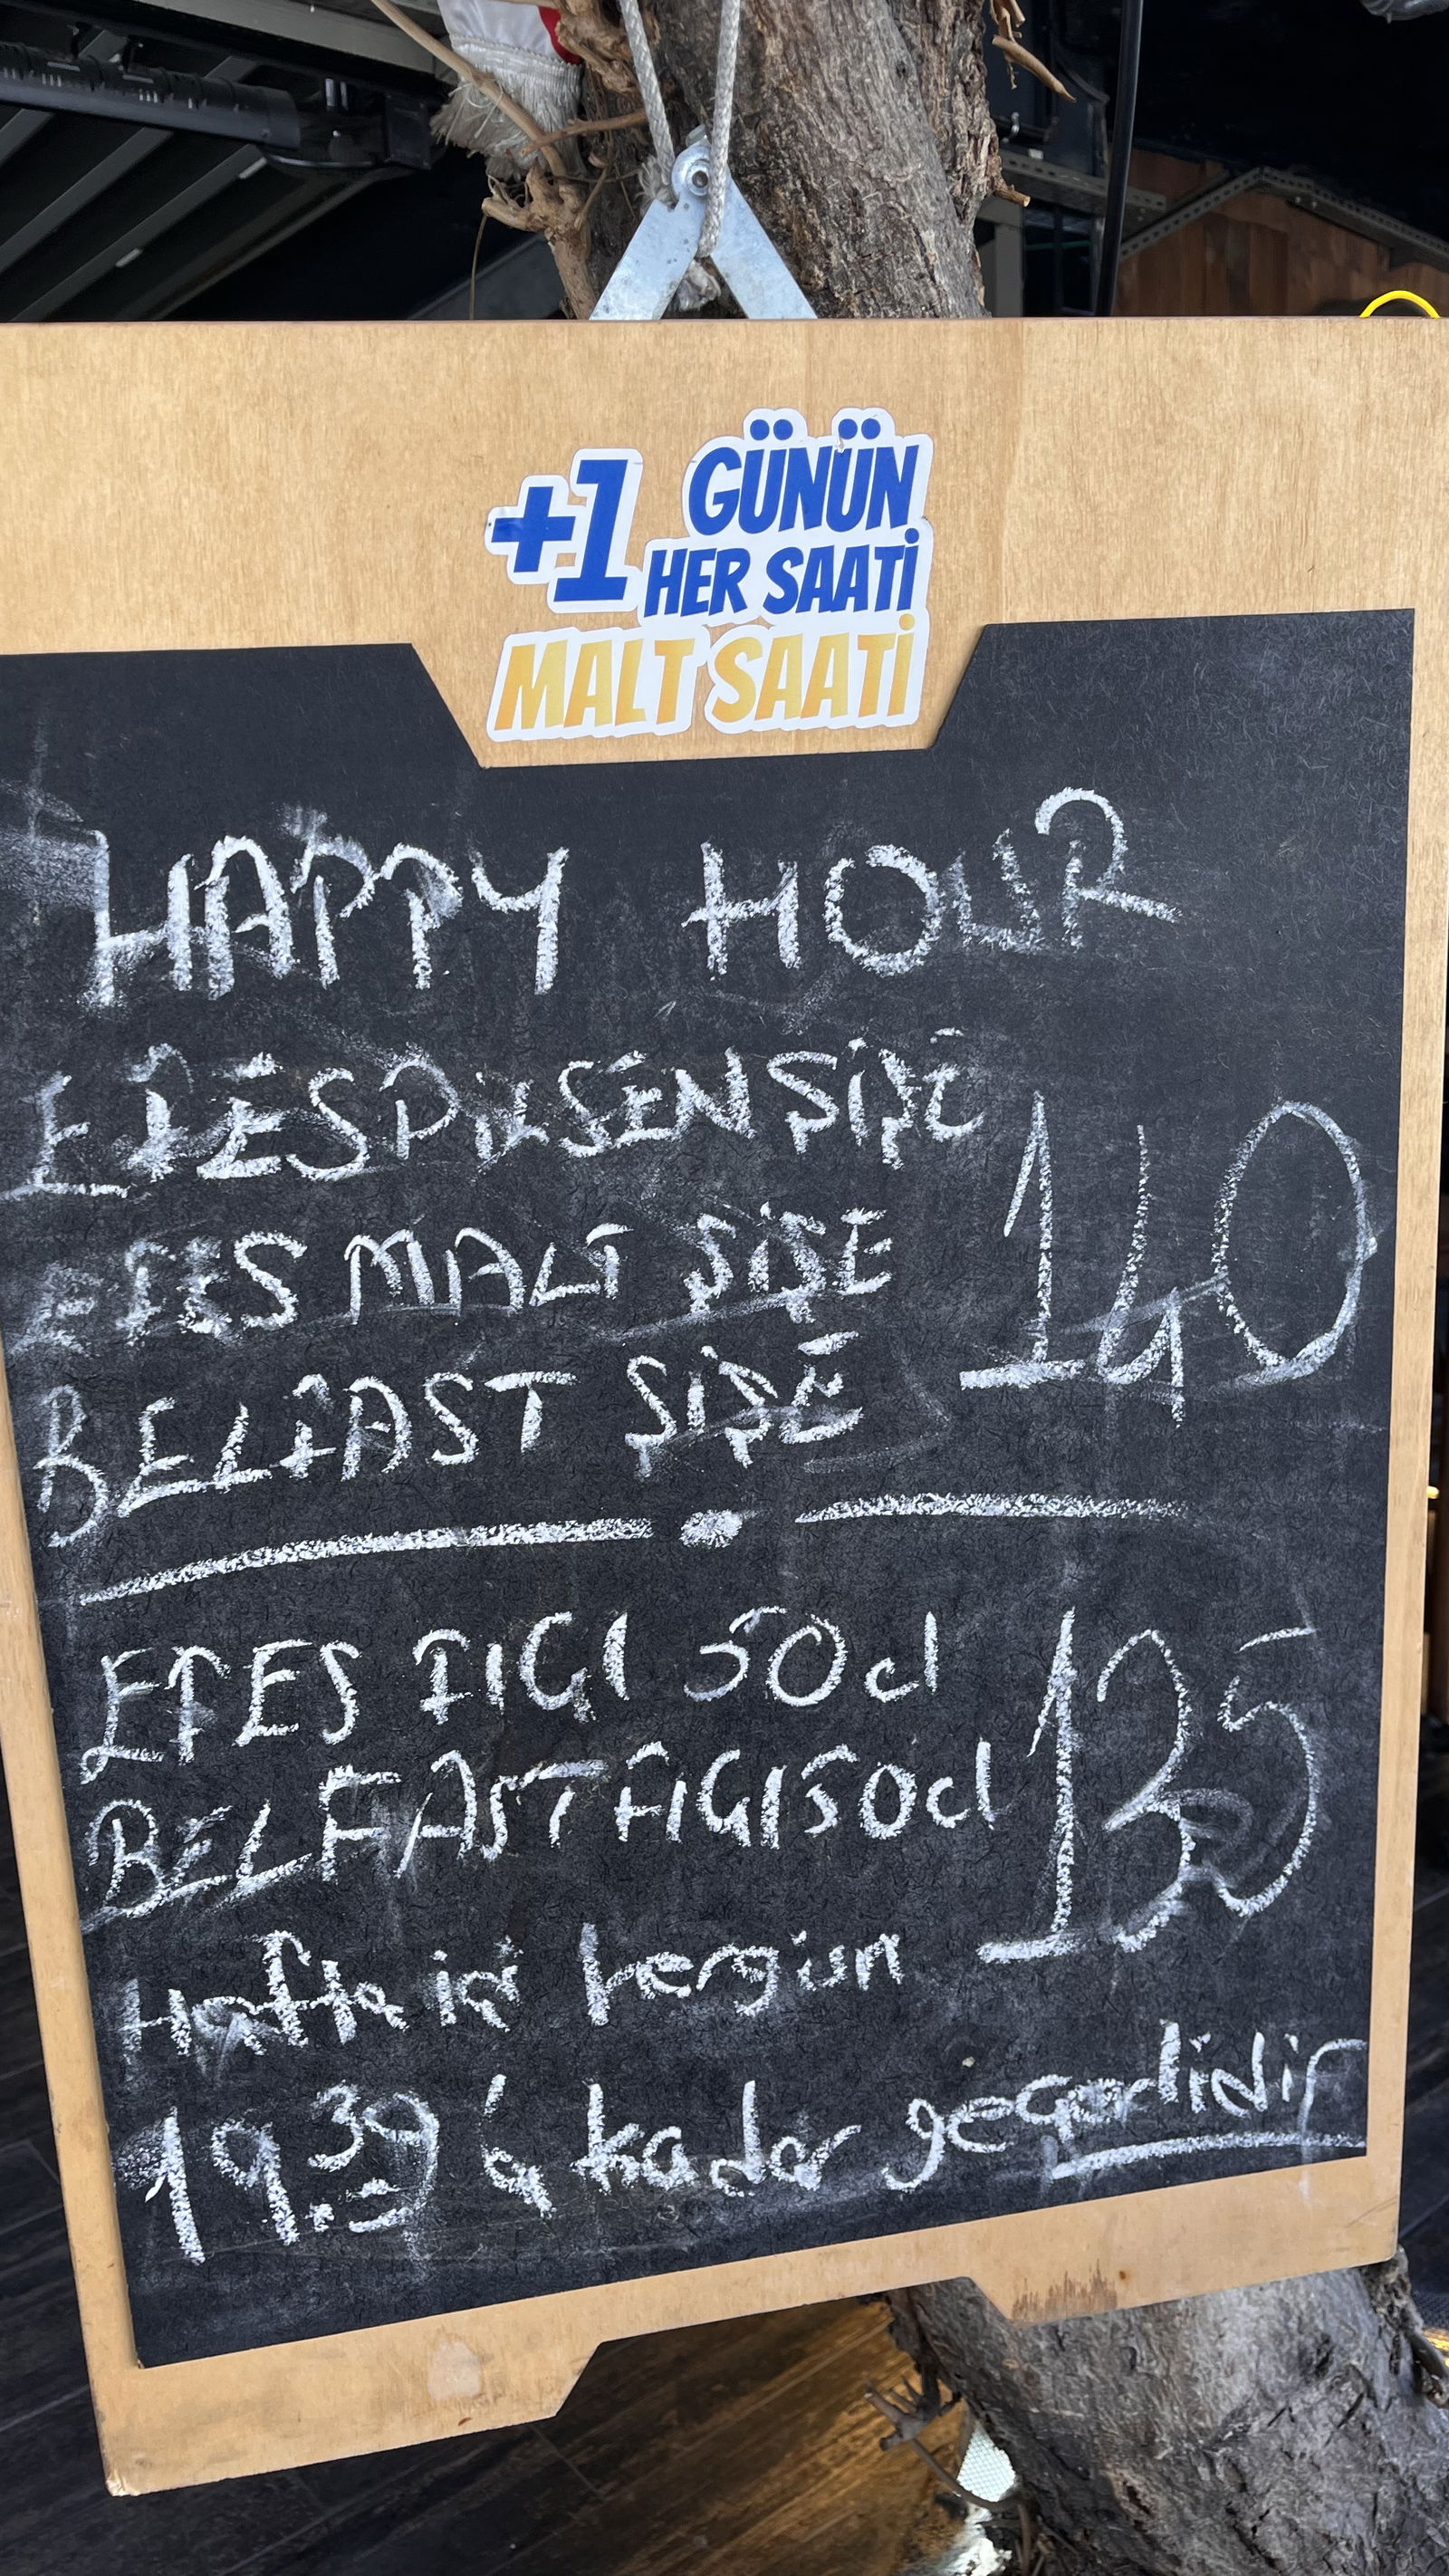 +1 GÜNÜN
HER SAATİ
MALT SAATİ
HAPPY HOUR
EFES PİLSEN ŞİŞE
EFES MALT ŞİŞE
140
BELFAST ŞİŞE
EFES FIÇI 50cl
BELFAST FIÇI 50cl
135
Hafta içi hergün
19.30'a kadar geçerlidir